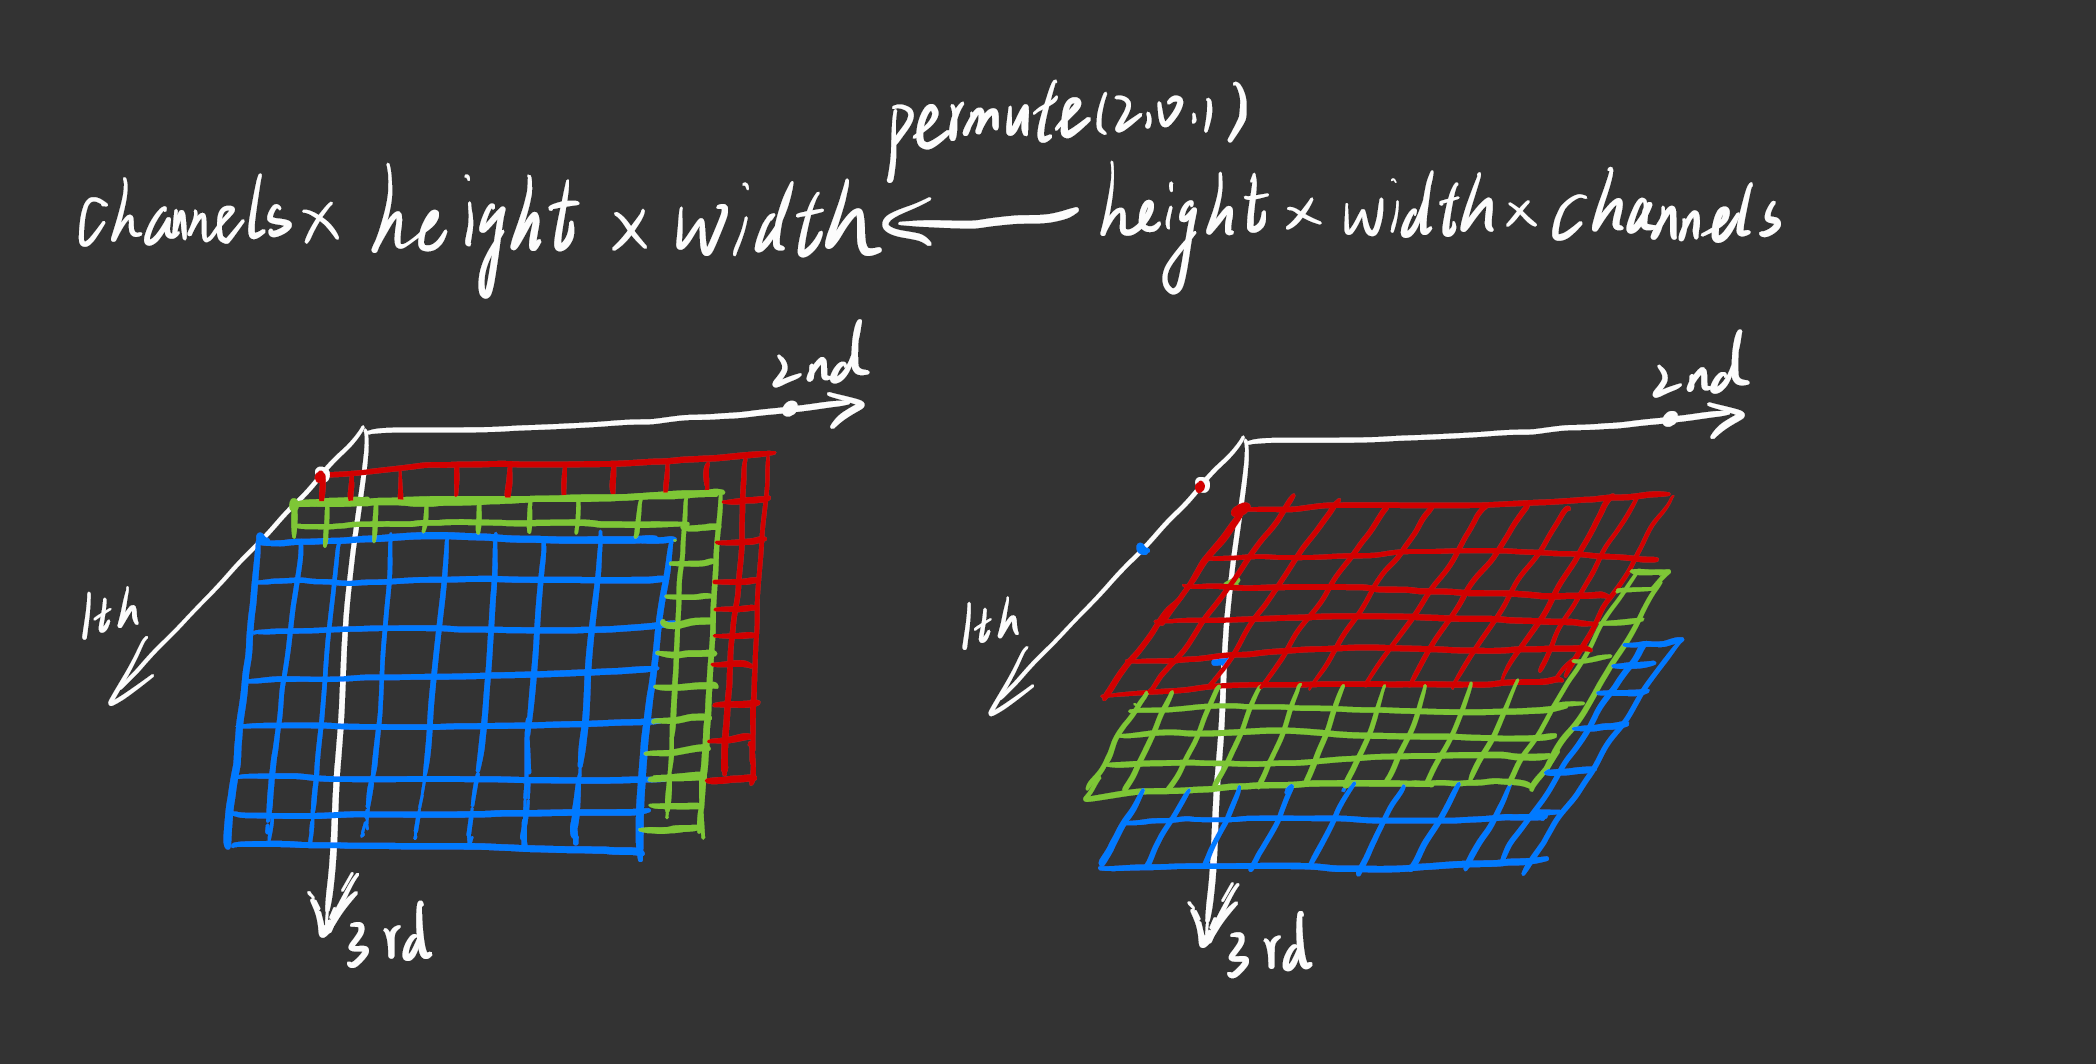 permute(2,0,1)
channels × height × width ← height × width × channels
2nd
2nd
1th
1th
3rd
3rd